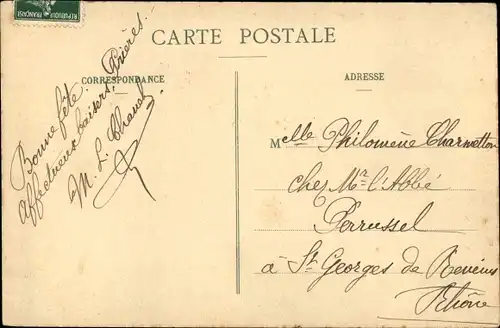 REPUBLIQUE FRANÇAISE
CARTE POSTALE
CORRESPONDANCE
Bonne fête.
Affectueux baisers. Prières.
M. L.
ADRESSE
Melle Philomène Charmetton
chez Mr. l'Abbé
Perrussel
à St Georges de Reneins
Rhône